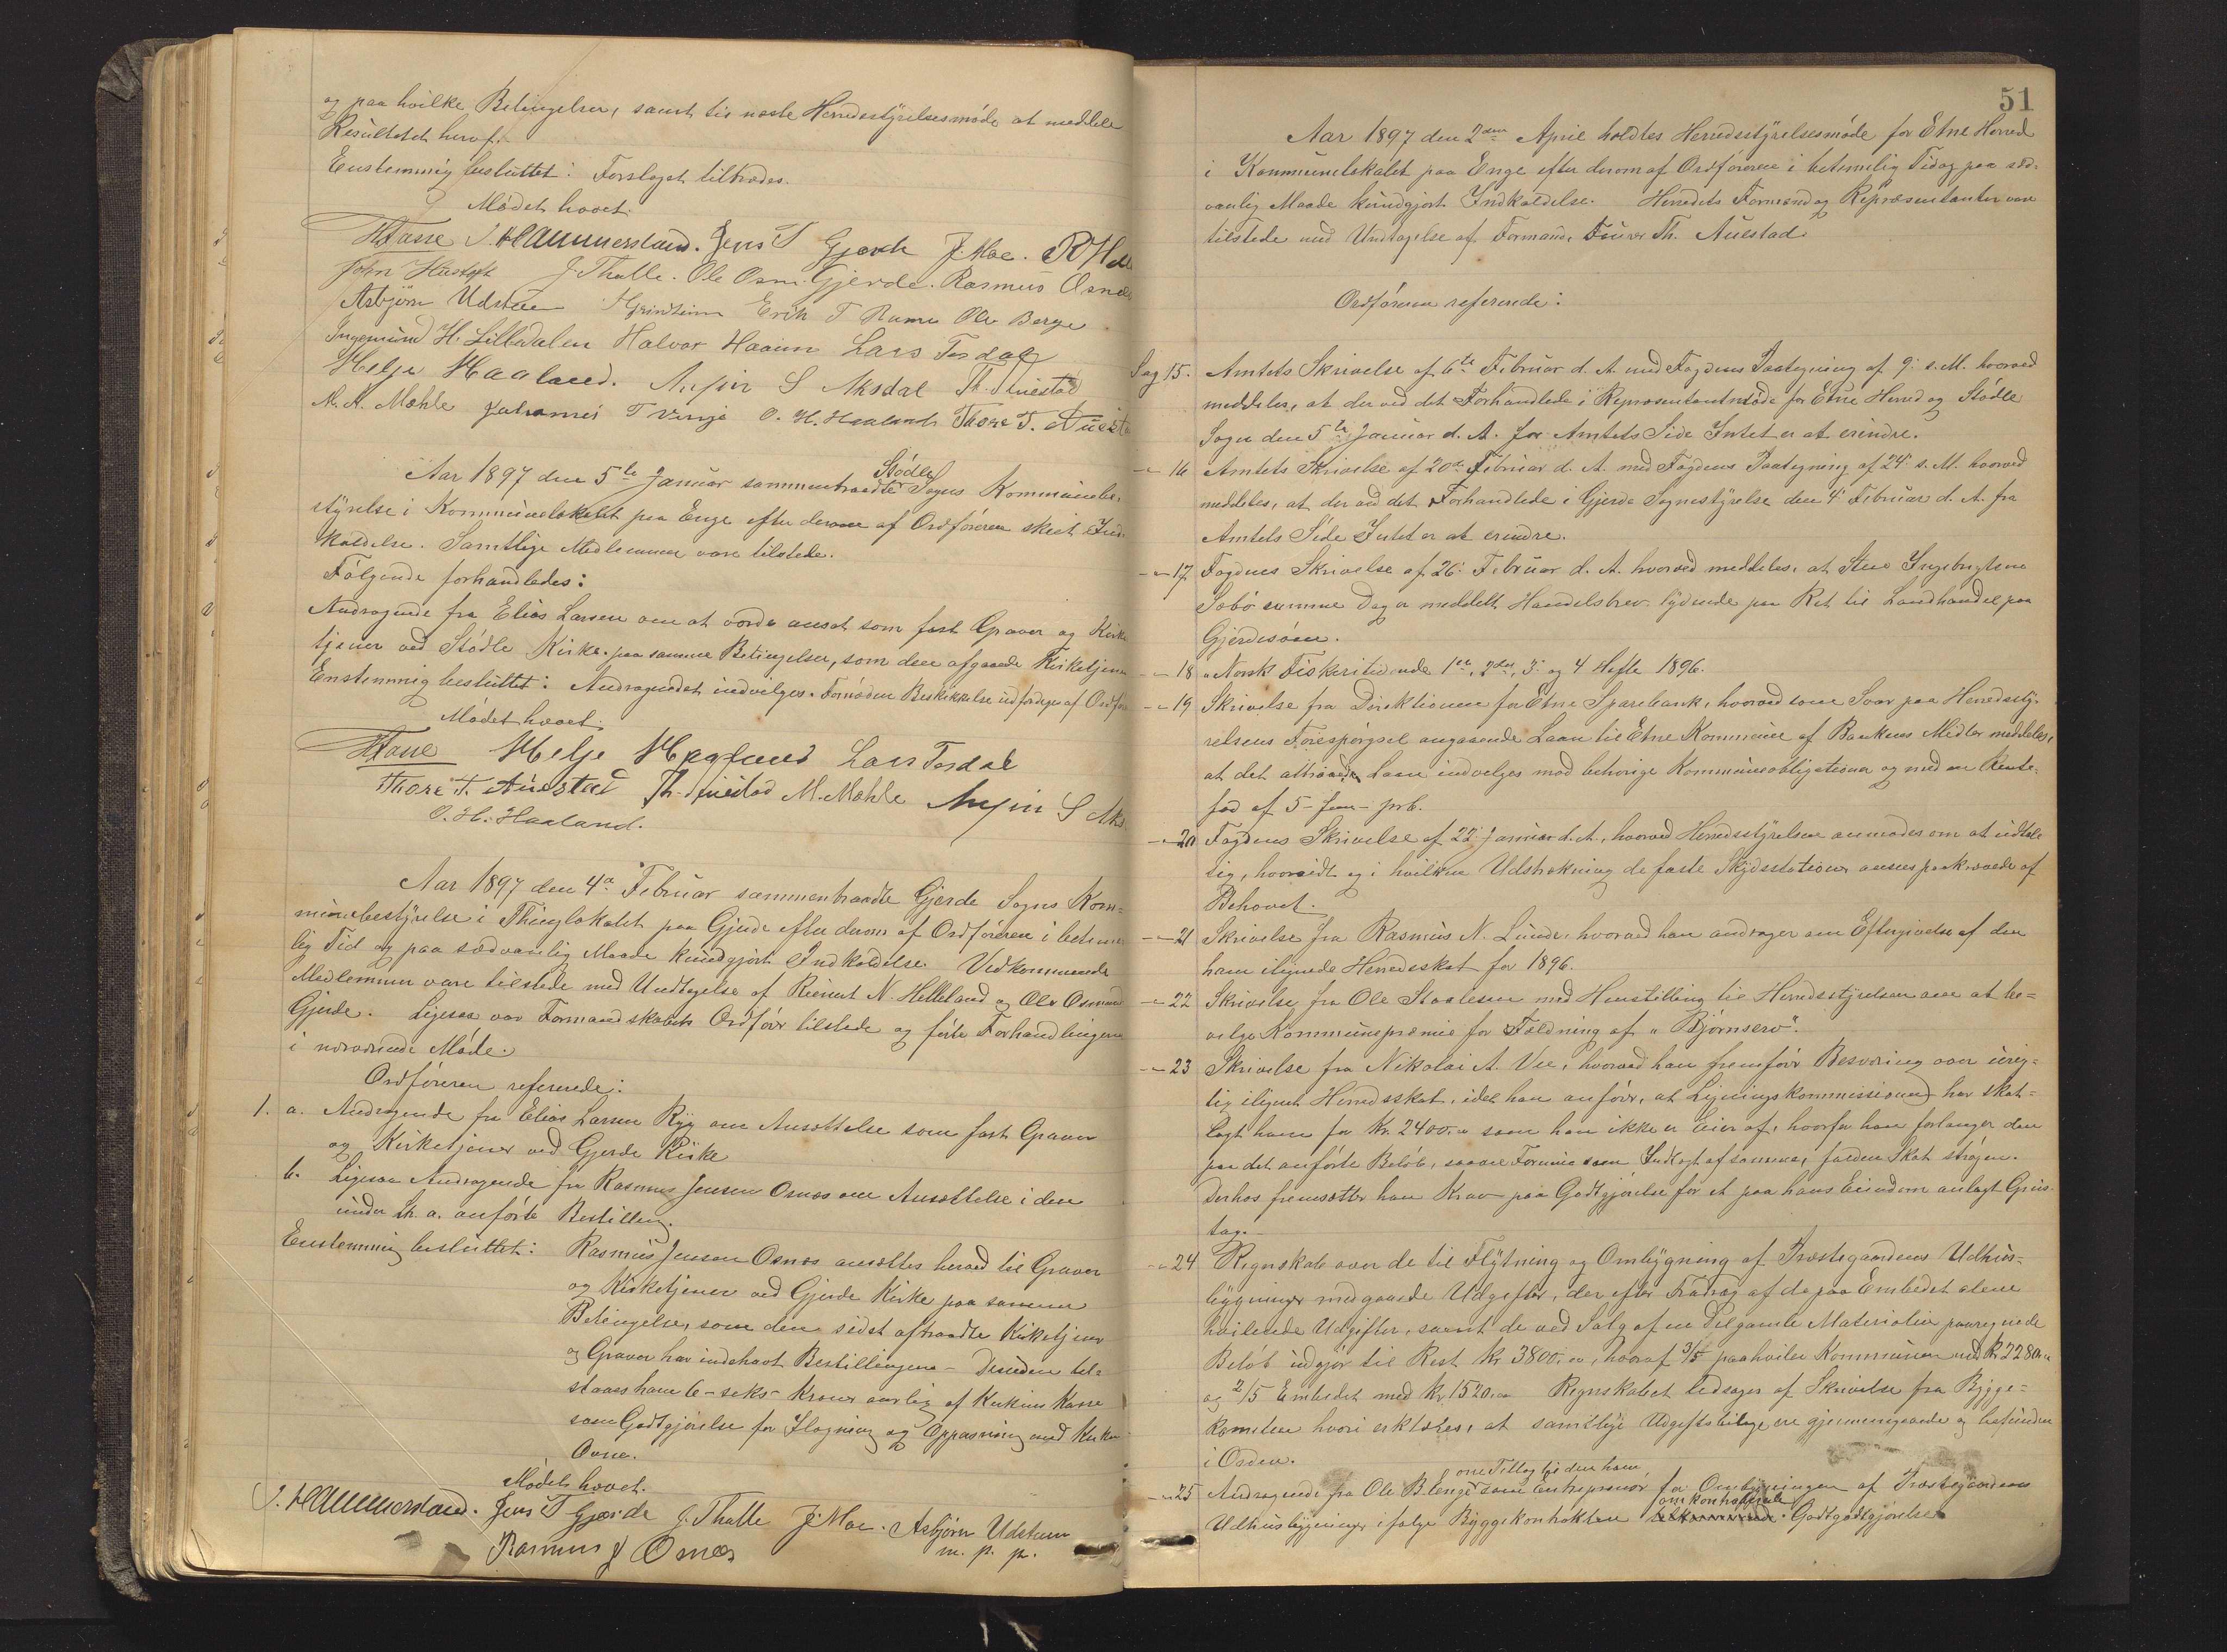 og paa hvilke Betingelser, samt til næste Herredsstyrelsesmøde at meddele
Resultatet heraf.
Enstemmig besluttet: Forslaget tiltrædes.
Mødet hævet.
J. Hammersland. Jens T Gjerde J. Moe.
J. Thalle. Ole Osm. Gjerde. Rasmus Osnes
Asbjørn Udstein Grindheim Erik T Rame Ole Berge
Ingemund H. Lilledalen Halvor Haaim Lars Tesdal
Helje Haaland. S Aksdal Th. Auestad
M. Mæhle Johannes T Vinje O. H. Haaland Thore T. Auestad
Aar 1897 den 5te Januar sammentraadte Stødle Sogns Kommunebe-
styrelse i Kommunelokalet paa Enge efter derom af Ordføreren skeet Ind-
kaldelse. Samtlige Medlemmer vare tilstede.
Følgende forhandledes:
Andragende fra Elias Larsen om at vorde ansat som fast Graver og Kirke
tjener ved Stødle Kirke paa samme Betingelser, som den afgaaede Kirketjener
Enstemmig besluttet: Andragendet indvilges. Fornøden Beskikkelse udfærdiges af Ordfør
Mødet hævet.
Helje Haaland Lars Tesdal
Thore T. Auestad Th. Auestad M. Mæhle S Aks
O. H. Haaland.
Aar 1897 den 4de Februar sammentraadte Gjerde Sogns Kom=
munebestyrelse i Thinglokalet paa Gjerde efter derom af Ordføreren i betime
lig Tid og paa sædvanlig Maade kundgjort Indkaldelse. Vedkommende
Medlemmer vare tilstede med Undtagelse af Reinert N. Helleland og Ole Osmund
Gjerde. Ligesaa var Formandskabets Ordfører tilstede og førte Forhandlingerne
i nærværende Møde.
Ordføreren refererede:
1. a. Andragende fra Elias Larsen Ryg om Ansættelse som fast Graver
og Kirketjener ved Gjerde Kirke
b. Ligesaa Andragende fra Rasmus Jensen Osnes om Ansættelse i den
under Litr. a. anførte Bestilling.
Enstemmig besluttet: Rasmus Jensen Osnes ansættes herved til Graver
og Kirketjener ved Gjerde Kirke paa samme
Betingelser, som den sidst aftraadte Kirketjener
og Graver har indehavt Bestillingene - Desuden til=
staaes ham 6 - seks - Kroner aarlig af Kirkens Kasse
som Godtgjørelse for Ilægning og Oppasning med Kirkens
Ovne.
Mødet hævet.
J. Hammersland. Jens T Gjerde J. Thalle J. Moe. Asbjørn Udstein
Rasmus J Osnes m. p. p.
51
Aar 1897 den 2den April holdtes Herredsstyrelsesmøde for Etne Herred
i Kommunelokalet paa Enge efter derom af Ordføreren i betimelig Tid og paa sæd-
vanlig Maade kundgjort Indkaldelse. Herredets Formænd og Repræsentanter vare
tilstede med Undtagelse af Formand, Th. Auestad
Ordføreren refererede:
Sag 15. Amtets Skrivelse af 6te Februar d. A. med Fogdens Paategning af 9. s. M. hvorved
meddeles, at der ved det Forhandlede i Repræsentantmøde for Etne Herred og Stødle
Sogn den 5te Januar d. A. fra Amtets Side Intet er at erindre.
-"- 16 Amtets Skrivelse af 20de Februar d. A. med Fogdens Paategning af 24. s. M. hvorved
meddeles, at der ved det Forhandlede i Gjerde Sognestyrelse den 4. Februar d. A. fra
Amtets Side Intet er at erindre.
-"- 17 Fogdens Skrivelse af 26. Februar d. A. hvorved meddeles, at Sten Ingebrigtsen
Sæbø samme Dag er meddelt Handelsbrev lydende paa Ret til Landhandel paa
Gjerdesøen.
-"- 18 "Norsk Fiskeritidende 1ste, 2det, 3. og 4 Hefte 1896.
-"- 19 Skrivelse fra Direktionen for Etne Sparebank, hvorved som Svar paa Herredssty-
relsens Forespørgsel angaaende Laan til Etne Kommune af Bankens Midler meddeles,
at det attraaede Laan indvilges mod behørige Kommuneobligationer og med en Rente-
fod af 5 - fem - pct.
-"- 20 Fogdens Skrivelse af 22. Januar d. A., hvorved Herredsstyrelsen anmodes om at udtale
sig, hvorvidt og i hvilken Udstrækning de faste Skydsstationer ansees paakrævede af
Behovet.
-"- 21 Skrivelse fra Rasmus N. Lunde, hvorved han andrager om Eftergivelse af den
ham ilignede Herredsskat for 1896.
-"- 22 Skrivelse fra Ole Staalesen med Henstilling til Herredsstyrelsen om at be=
vilge Kommunepræmie for Fældning af "Bjørnserv".
-"- 23 Skrivelse fra Nikolai A. Vee, hvorved han fremfører Besværing over urig=
tig ilignet Herredsskat, idet han anfører, at Ligningskommissionen har skat=
lagt ham for Kr. 2400,00 som han ikke er Eier af, hvorfor han forlanger den
paa det anførte Beløb, saavel Formue som Indtægt af samme, faldne Skat strøgen.
Derhos fremsætter han Krav paa Godtgjørelse for et paa hans Eiendom anlagt Grus-
tag.-
-"- 24 Regnskab over de til Flytning og Ombygning af Præstegaardens Udhus-
bygninger medgaaede Udgifter, der efter Fradrag af de paa Embedet alene
hvilende Udgifter, samt de ved Salg af en Del gamle Materialier paaregnede
Beløb udgjør til Rest Kr 3800,00, hvoraf 3/5 paahviler Kommunen med Kr 2280,00
og 2/5 Embedet med Kr. 1520,00 Regnskabet ledsages af Skrivelse fra Bygge=
komiteen hvori erklæres, at samtlige Udgiftsbilage ere gjennemgaaede og befundne
i Orden.
-"- 25 Andragende fra Ole B. Enge som Entreprenør om Tillæg til den ham for Ombygningen af Præstegaardens
Udhusbygninger ifølge Byggekontrakten omkontraherede Godtgodtgjørelse